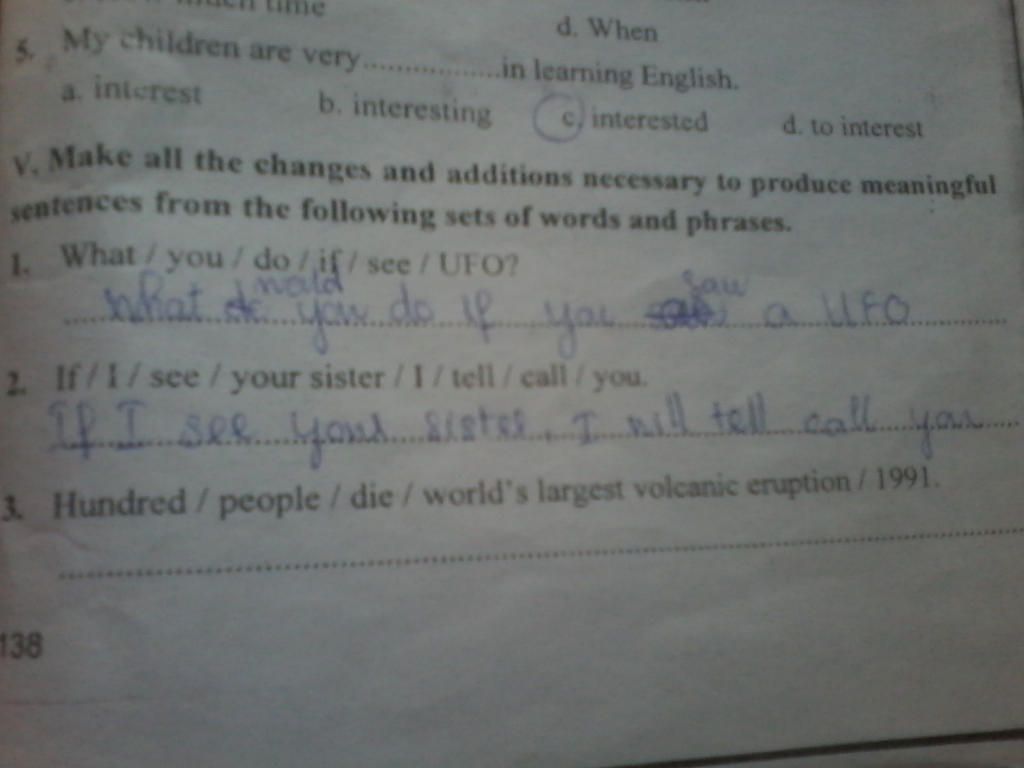 much time
d. When
5. My children are very.................in learning English.
a. interest b. interesting c. interested d. to interest
V. Make all the changes and additions necessary to produce meaningful
sentences from the following sets of words and phrases.
1. What / you / do / if / see / UFO?
would saw
What do you do if you a UFO
2. If / I / see / your sister / I / tell / call / you.
If I see your sister, I will tell call you
3. Hundred / people / die / world's largest volcanic eruption / 1991.
138